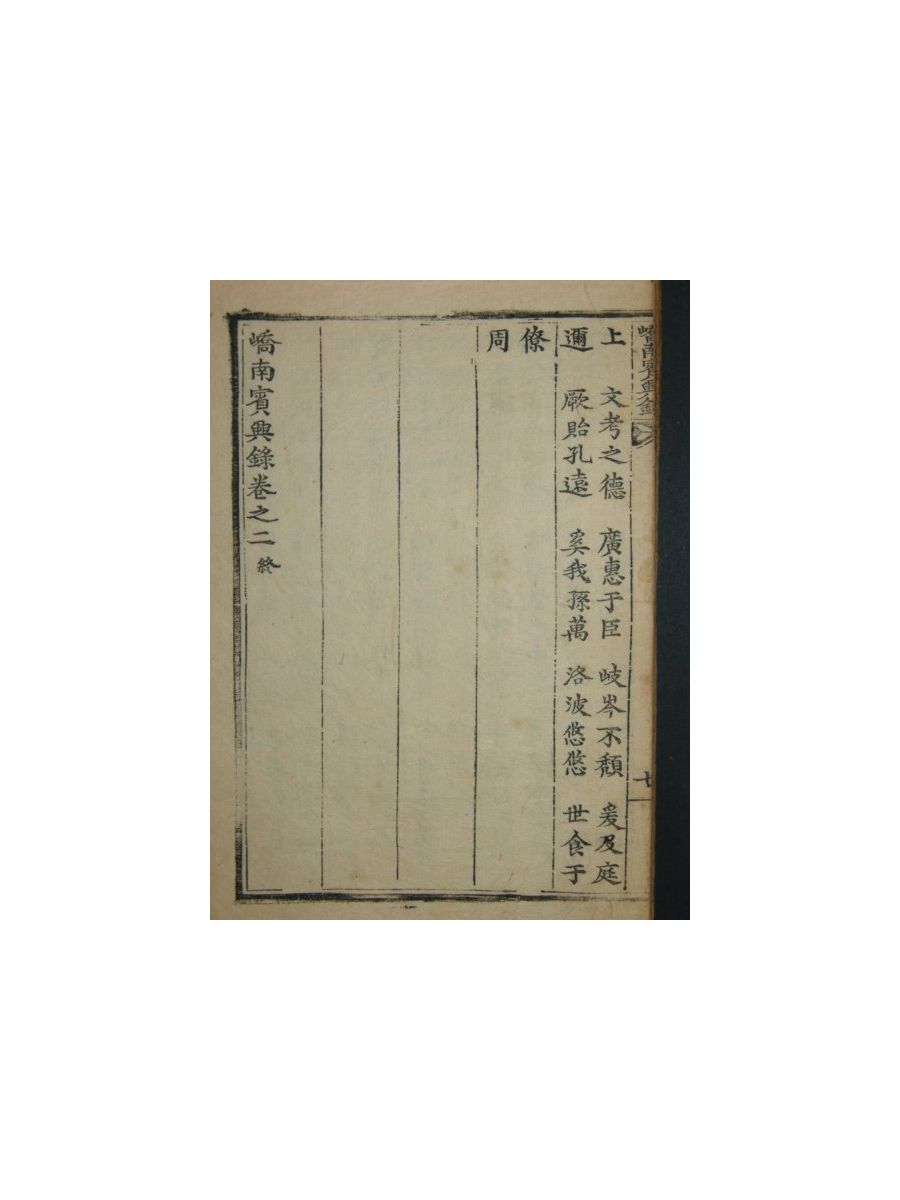 嶠南賓興錄
上 文考之德 廣惠于臣 岐岑不頹 爰及庭
邇 厥貽孔遠 奚我孫萬 洛波悠悠 世食于
僚
周
嶠南賓興錄卷之二 終